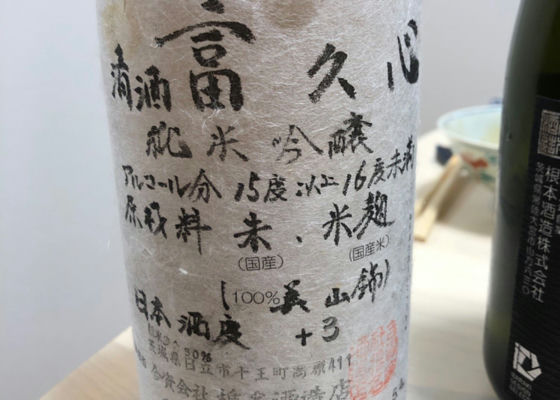 富久心
清酒
純米吟醸
アルコール分 15度以上16度未満
原材料 米、米麹
(国産) (国産米)
(100%美山錦)
日本酒度 +3
茨城県日立市十王町
合資会社
根本酒造株式会社